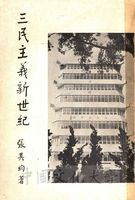 三民主義新世紀
張其昀著